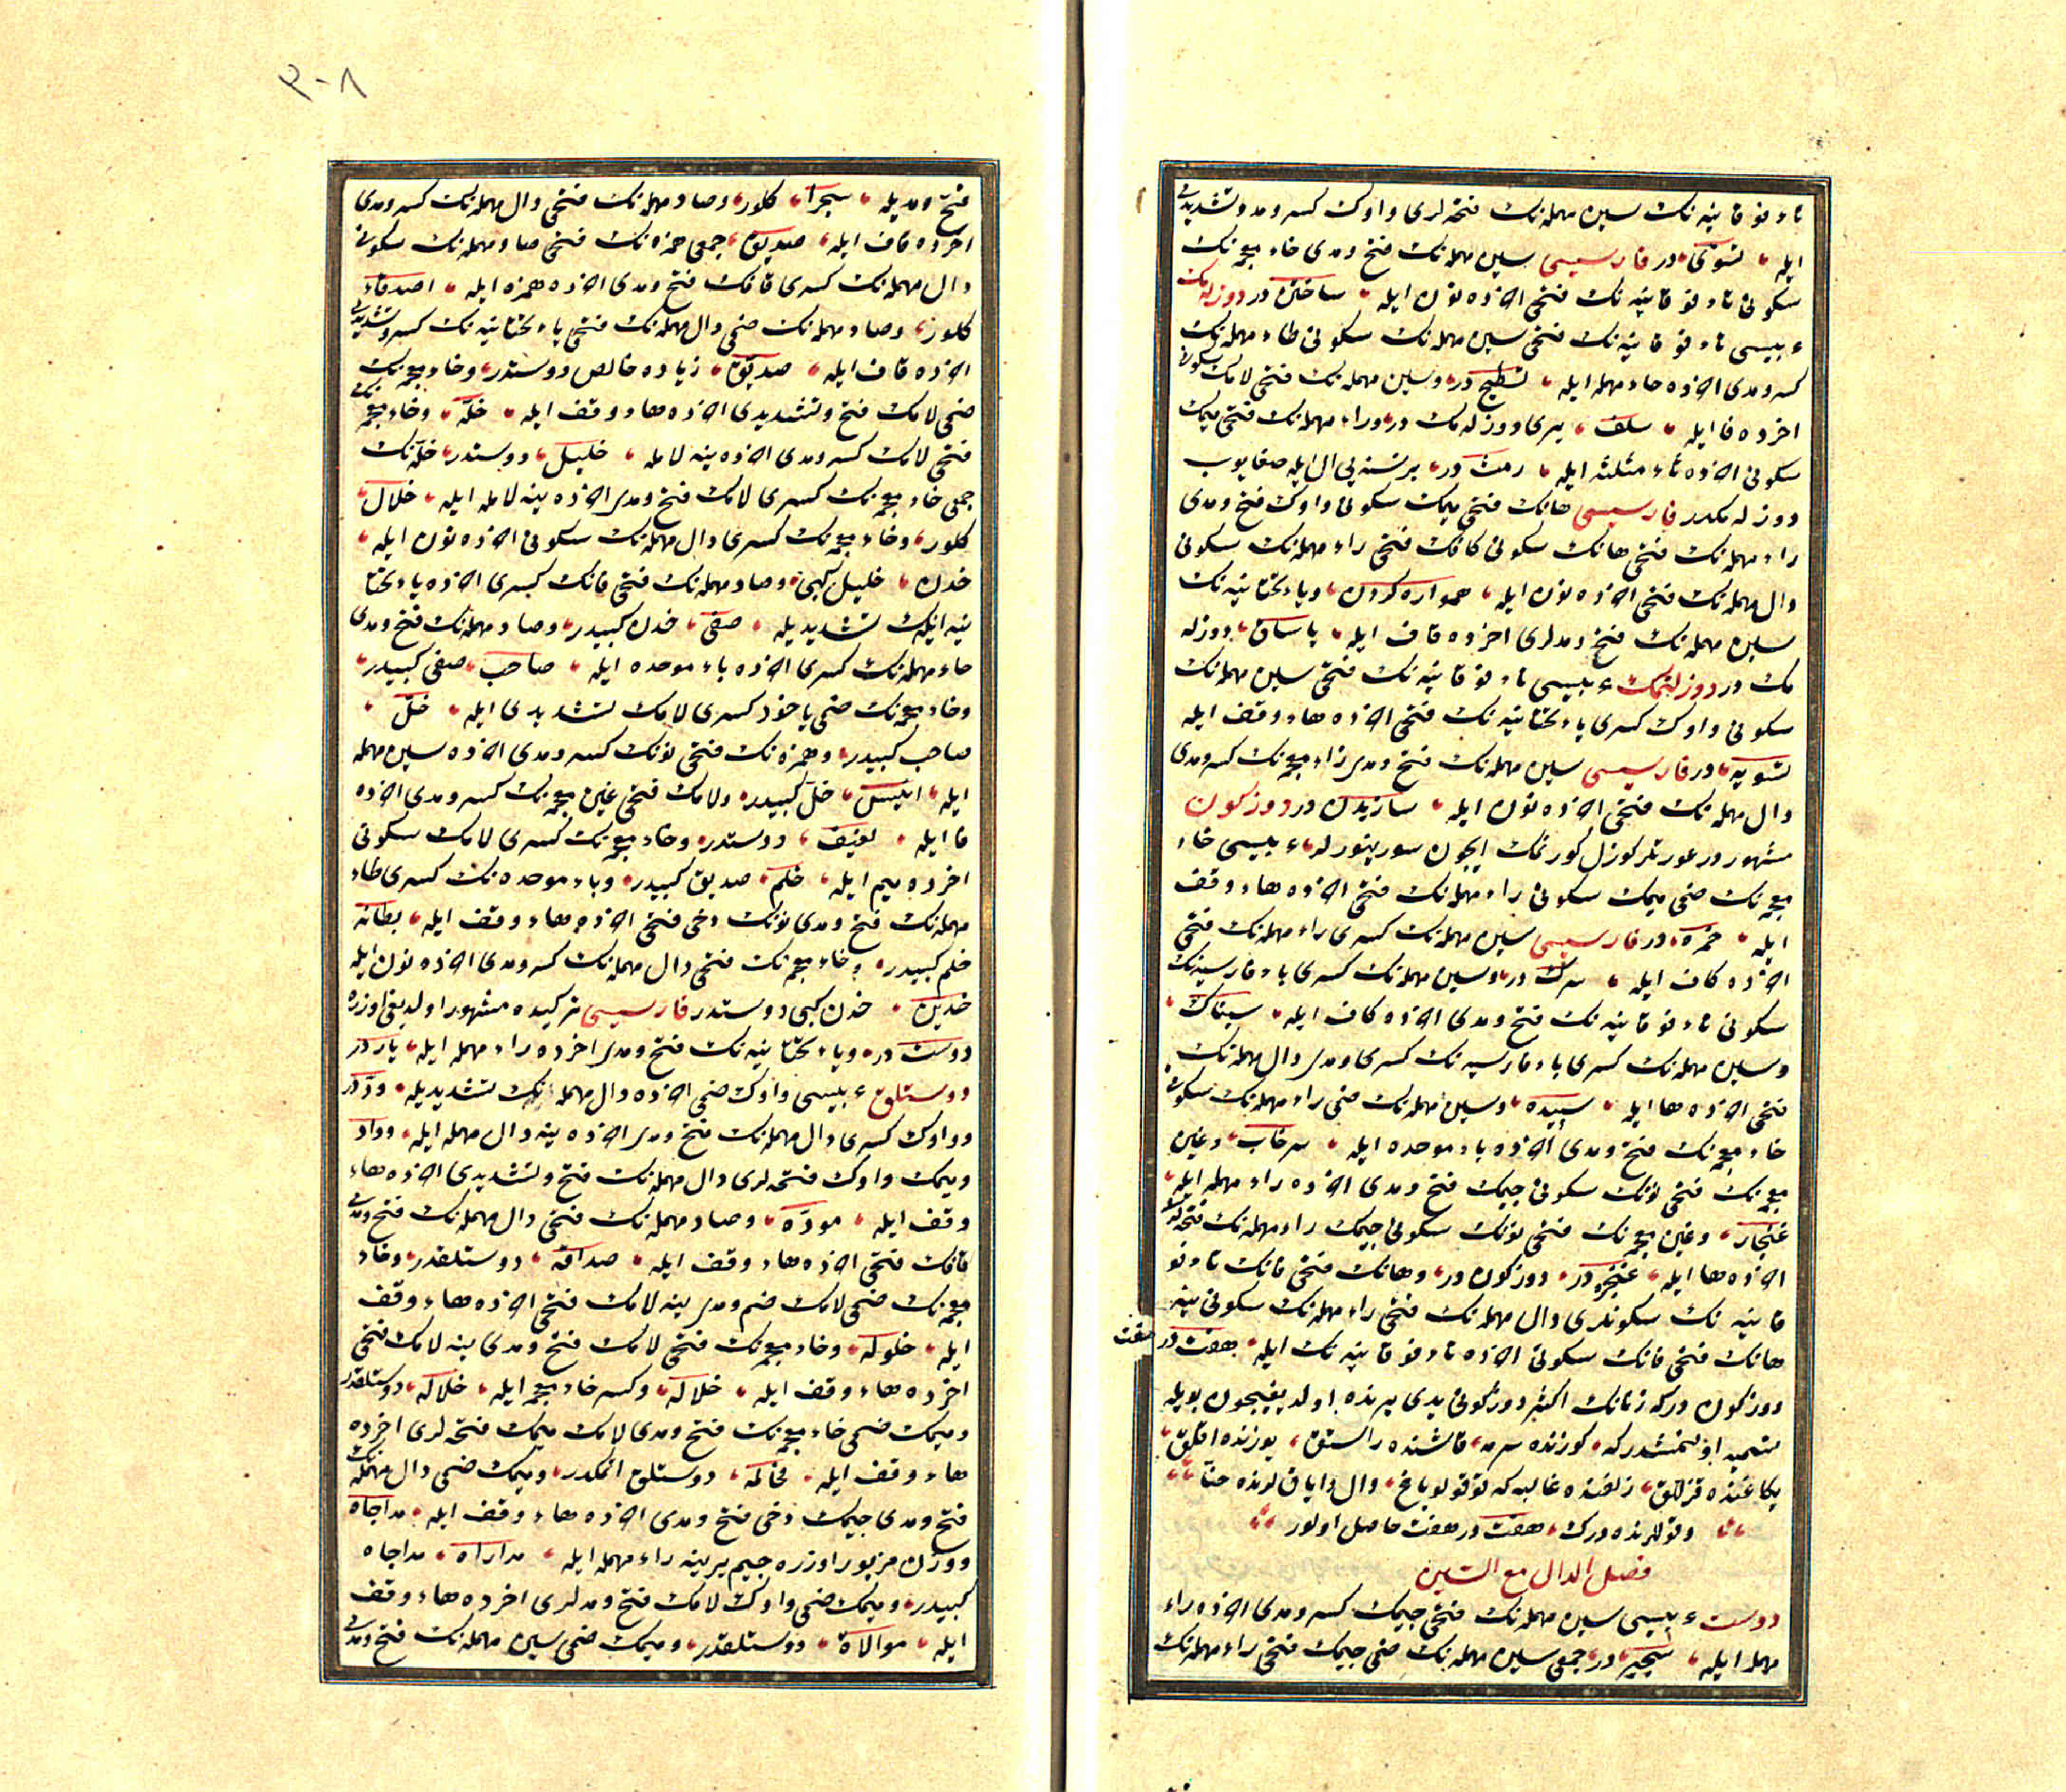 تاء فوقانیه‌نك سین مهمله‌نك فتحه‌لری واوك كسر و مد و تشدیدی
ایله تسوّی در فارسیسی سین مهمله‌نك فتح و مدی خاء معجمه‌نك
سكونی تاء فوقانیه‌نك فتحی آخرده نون ایله ساختن در دوزلمك
ء بیسی تاء فوقانیه‌نك فتحی سین مهمله‌نك سكونی طاء مهمله‌نك
كسر و مدی آخرده حاء مهمله ایله تسطیح در و سین مهمله‌نك فتحی لامك سكونی
اخرده فا ایله سلف یری دوزلمك در و راء مهمله‌نك فتحی میمك
سكونی آخرده ثاء مثلثه ایله رمث در بر نسنه‌یی ال ایله صغایوب
دوزلمكدر فارسیسی هانك فتحی میمك سكونی واوك فتح و مدی
راء مهمله‌نك فتحی هانك سكونی كافك فتحی راء مهمله‌نك سكونی
دال مهمله‌نك فتحی آخرده نون ایله همواره كردن و یاء تحتانیه‌نك
سین مهمله‌نك فتح و مدلری اخرده قاف ایله یاساق دوزله
مك در دوزلتمك ء بیسی تاء فوقانیه‌نك فتحی سین مهمله‌نك
سكونی واوك كسری یاء تحتانیه‌نك فتحی آخرده هاء وقف ایله
تسویه در فارسیسی سین مهمله‌نك فتح و مدی زاء معجمه‌نك كسر و مدی
دال مهمله‌نك فتحی آخرده نون ایله سازیدن در دوزكون
مشهور در عورتلر كوزل كورنمك ایچون سورینورلر ء بیسی خاء
معجمه‌نك ضمی میمك سكونی راء مهمله‌نك فتحی آخرده هاء وقف
ایله خمره در فارسیسی سین مهمله‌نك كسری راء مهمله‌نك فتحی
آخرده كاف ایله سرك در و سین مهمله‌نك كسری باء فارسیه‌نك
سكونی تاء فوقانیه‌نك فتح و مدی آخرده كاف ایله سپتاك
و سین مهمله‌نك كسری باء فارسیه‌نك كسری و مدی دال مهمله‌نك
فتحی آخرده ها ایله سپیده و سین مهمله‌نك ضمی راء مهمله‌نك سكونی
خاء معجمه‌نك فتح و مدی آخرده باء موحده ایله سرخاب و غین
معجمه‌نك فتحی نونك سكونی جیمك فتح و مدی آخرده راء مهمله ایله
غنجار و غین معجمه‌نك فتحی نونك سكونی جیمك راء مهمله‌نك فتحه‌لری
آخرده ها ایله غنجره در دوزكون در و هانك فتحی فانك تاء فو
قانیه‌نك سكونلری دال مهمله‌نك فتحی راء مهمله‌نك سكونی ینه
هانك فتحی فانك سكونی آخرده تاء فوقانیه‌نك ایله هفت در
هفت
دوزكون در كه زنانك اكثر دوزكونی یدی یرنده اولدیغیچون بویله
تسمیه اولنمشدر كه كوزنده سرمه قاشنده راستق یوزنده اقلق
یكاغنده قزللق زلفنده غالیه كه قوقولو یاغ و ال و ایاقلرنده حنّا
و قوللرنده درك هفت در هفت حاصل اولور
فصل الدال مع السین
دوست ء بیسی سین مهمله‌نك فتحی جیمك كسر و مدی آخرده راء
مهمله ایله سجیر در جمعی سین مهمله‌نك ضمی جیمك فتحی راء مهمله‌نك
٣٠٨
فتح و مدیله سجرا كلور و صاد مهمله‌نك فتحی دال مهمله‌نك كسر و مدی
اخرده قاف ایله صدیق جمعی همزه‌نك فتحی صاد مهمله‌نك سكونی
دال مهمله‌نك كسری قافك فتح و مدی آخرده همزه ایله اصدقاء
كلور و صاد مهمله‌نك ضمی دال مهمله‌نك فتحی یاء تحتانیه‌نك كسر و تشدیدی
آخرده قاف ایله صدیّق زیاده خالص دوستدر و خاء معجمه‌نك
ضمی لامك فتح و تشدیدی آخرده هاء وقف ایله خلّه و خاء معجمه‌نك
فتحی لامك كسر و مدی آخرده ینه لامله خلیل دوستدر خلّه‌نك
جمعی خاء معجمه‌نك كسری لامك فتح و مدی آخرده ینه لامله ایله خلال
كلور و خاء معجمه‌نك كسری دال مهمله‌نك سكونی آخرده نون ایله
خدن خلیل كبی و صاد مهمله‌نك فتحی فانك كسری آخرده یاء تحتا
نیه ایله‌نك تشدیدیله صفی خدن كبیدر و صاد مهمله‌نك فتح و مدی
حاء مهمله‌نك كسری آخرده باء موحده ایله صاحب صفی كبیدر
و خاء معجمه‌نك ضمی یاخود كسری لامك تشدیدی ایله خلّ
صاحب كبیدر و همزه‌نك فتحی نونك كسر و مدی آخرده سین مهمله
ایله انیس خلّ كبیدر و لامك فتحی غین معجمه‌نك كسر و مدی آخرده
فا ایله لغیف دوستدر و خاء معجمه‌نك كسری لامك سكونی
اخرده میم ایله خلم صدیق كبیدر و باء موحده‌نك كسری طاء
مهمله‌نك فتح و مدی نونك دخی فتحی آخرده هاء وقف ایله بطانه
خلم كبیدر و خاء معجمه‌نك فتحی دال مهمله‌نك كسر و مدی آخرده نون ایله
خدین خدن كبی دوستدر فارسیسی تركیده مشهور اولدیغی اوزره
دوست در و یاء تحتانیه‌نك فتح و مدی اخرده راء مهمله ایله یار در
دوستلق ء بیسی واوك ضمی آخرده دال مهمله‌نك تشدیدیله ودّ در
و واوك كسری دال مهمله‌نك فتح و مدی آخرده ینه دال مهمله ایله وداد
و میمك واوك فتحه‌لری دال مهمله‌نك فتح و تشدیدی آخرده هاء
وقف ایله مودّه و صاد مهمله‌نك فتحی دال مهمله‌نك فتح و مدی
قافك فتحی آخرده هاء وقف ایله صداقه دوستلقدر و خاء
معجمه‌نك ضمی لامك ضم و مدی ینه لامك فتحی آخرده هاء وقف
ایله خلوله و خاء معجمه‌نك فتحی لامك فتح و مدی ینه لامك فتحی
اخرده هاء وقف ایله خلاله و كسر خاء معجمه ایله خلاله دوستلقدر
و میمك ضمی خاء معجمه‌نك فتح و مدی لامك میمك فتحه‌لری اخرده
هاء وقف ایله دوستلق اتمكدر و میمك ضمی دال مهمله‌نك
فتح و مدی جیمك دخی فتح و مدی آخرده هاء وقف ایله مداجاه
و وزن مزبور اوزره جیم یرینه راء مهمله ایله مداراه مداجاه
كبیدر و میمك ضمی واوك لامك فتح و مدلری اخرده هاء وقف
ایله موالاة دوستلقدر و میمك ضمی سین مهمله‌نك فتح و مدی